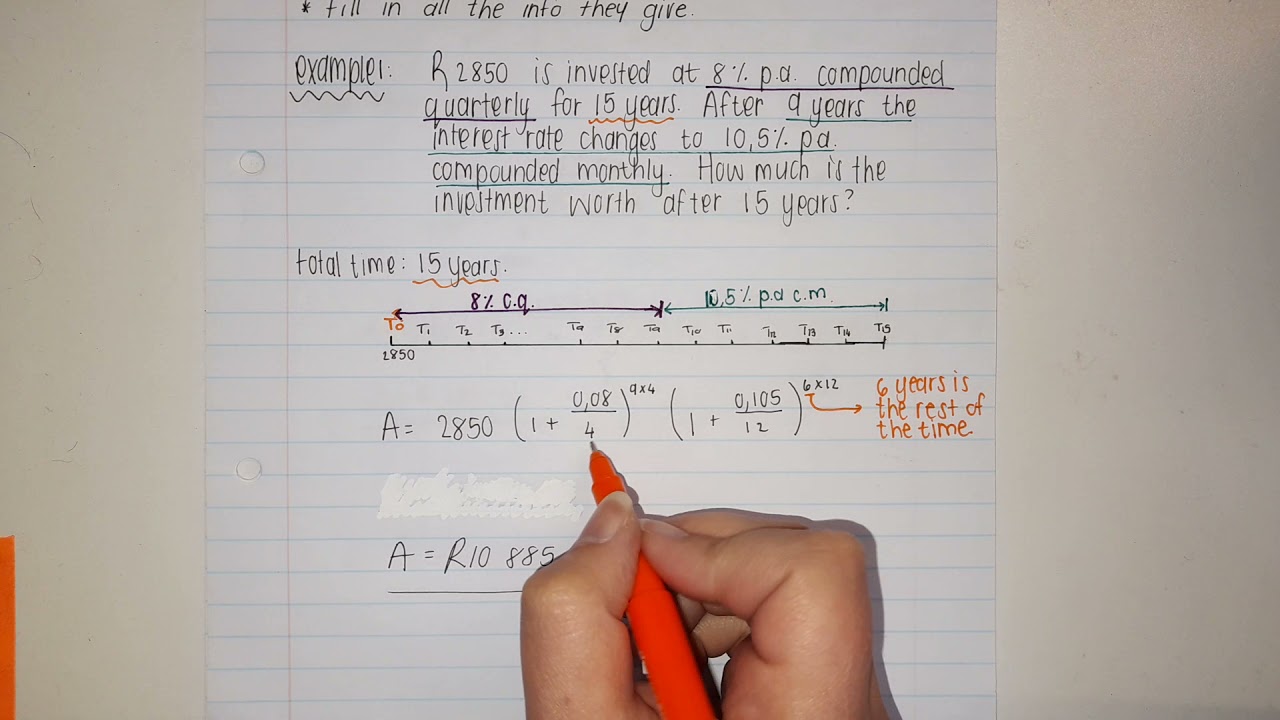 * fill in all the info they give.
example1: R2850 is invested at 8% p.a. compounded
quarterly for 15 years. After 9 years the
interest rate changes to 10,5% pa.
compounded monthly. How much is the
investment worth after 15 years?
total time: 15 years.
8% c.q. 10,5% p.a c.m.
T0 T1 T2 T3 ... T9 T8 T9 T10 T11 T12 T13 T14 T15
2850
A = 2850 (1 + 0,08/4)^9×4 (1 + 0,105/12)^6×12
6 years is
the rest of
the time.
A = R10 885